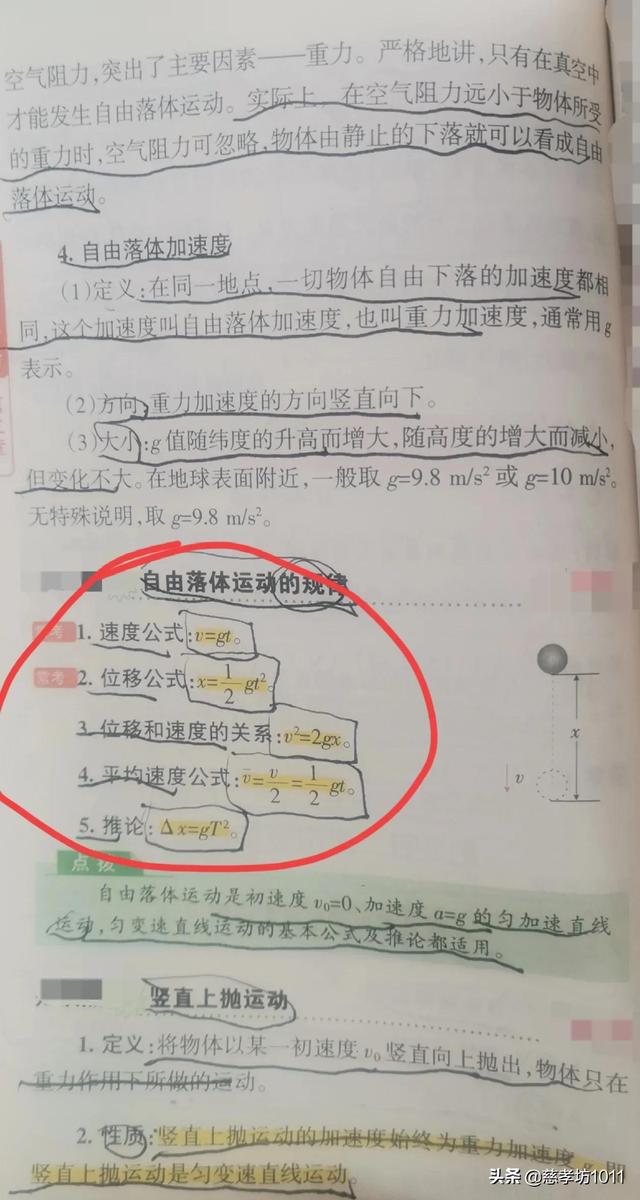 空气阻力,突出了主要因素——重力。严格地讲,只有在真空中
才能发生自由落体运动。实际上,在空气阻力远小于物体所受
的重力时,空气阻力可忽略,物体由静止的下落就可以看成自由
落体运动。
4. 自由落体加速度
(1)定义:在同一地点,一切物体自由下落的加速度都相
同,这个加速度叫自由落体加速度,也叫重力加速度,通常用g
表示。
(2)方向:重力加速度的方向竖直向下。
(3)大小:g值随纬度的升高而增大,随高度的增大而减小,
但变化不大。在地球表面附近,一般取 g=9.8 m/s²或g=10 m/s²。
无特殊说明,取 g=9.8 m/s²。
自由落体运动的规律
常考 1. 速度公式:v=gt。
常考 2. 位移公式:x=1/2 gt²。
3. 位移和速度的关系:v²=2gx。
4. 平均速度公式:v̄=v/2=1/2 gt。
5. 推论:Δx=gT²。
x
v
点拨
自由落体运动是初速度 v₀=0、加速度 a=g 的匀加速直线
运动,匀变速直线运动的基本公式及推论都适用。
竖直上抛运动
1. 定义:将物体以某一初速度 v₀ 竖直向上抛出,物体只在
重力作用下所做的运动。
2. 性质:竖直上抛运动的加速度始终为重力加速度
竖直上抛运动是匀变速直线运动。
头条 @慈孝坊1011